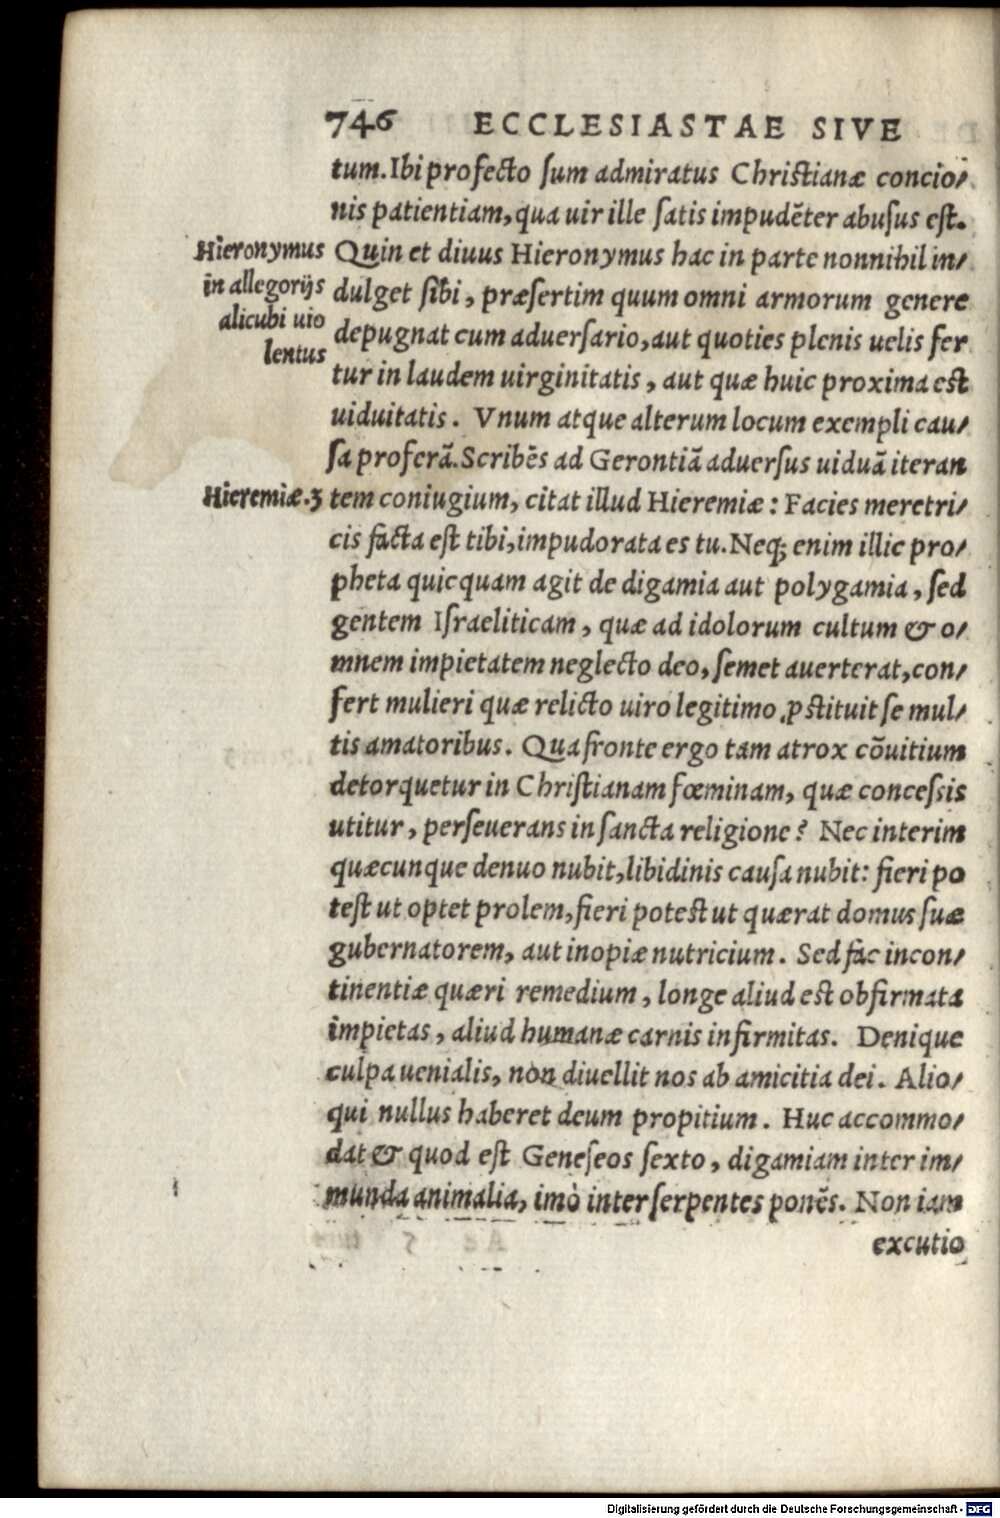 746 ECCLESIASTAE SIVE
tum. Ibi profecto ſum admiratus Chriſtianæ concio⸗
nis patientiam, qua uir ille ſatis impudẽter abuſus eſt.
Quin et diuus Hieronymus hac in parte nonnihil in⸗
dulget ſibi, præſertim quum omni armorum genere
depugnat cum aduerſario, aut quoties plenis uelis fer
tur in laudem uirginitatis, aut quæ huic proxima eſt
uiduitatis. Vnum atque alterum locum exempli cau⸗
ſa proferã. Scribẽs ad Gerontiã aduerſus uiduã iteran
tem coniugium, citat illud Hieremiæ: Facies meretri⸗
cis facta eſt tibi, impudorata es tu. Neq; enim illic pro⸗
pheta quicquam agit de digamia aut polygamia, ſed
gentem Iſraeliticam, quæ ad idolorum cultum & o⸗
mnem impietatem neglecto deo, ſemet auerterat, con⸗
fert mulieri quæ relicto uiro legitimo ꝓſtituit ſe mul⸗
tis amatoribus. Qua fronte ergo tam atrox cõuitium
detorquetur in Chriſtianam fœminam, quæ conceſsis
utitur, perſeuerans in ſancta religione? Nec interim
quæcunque denuo nubit, libidinis cauſa nubit: fieri po
teſt ut optet prolem, fieri poteſt ut quærat domus ſuæ
gubernatorem, aut inopiæ nutricium. Sed fac incon⸗
tinentiæ quæri remedium, longe aliud eſt obfirmata
impietas, aliud humanæ carnis infirmitas. Denique
culpa uenialis, non diuellit nos ab amicitia dei. Alio⸗
qui nullus haberet deum propitium. Huc accommo⸗
dat & quod eſt Geneſeos ſexto, digamiam inter im⸗
munda animalia, imò inter ſerpentes ponẽs. Non iam
excutio
Hieronymus
in allegorijs
alicubi uio
lentus
Hieremiæ.3
Digitalisierung gefördert durch die Deutsche Forschungsgemeinschaft - DFG